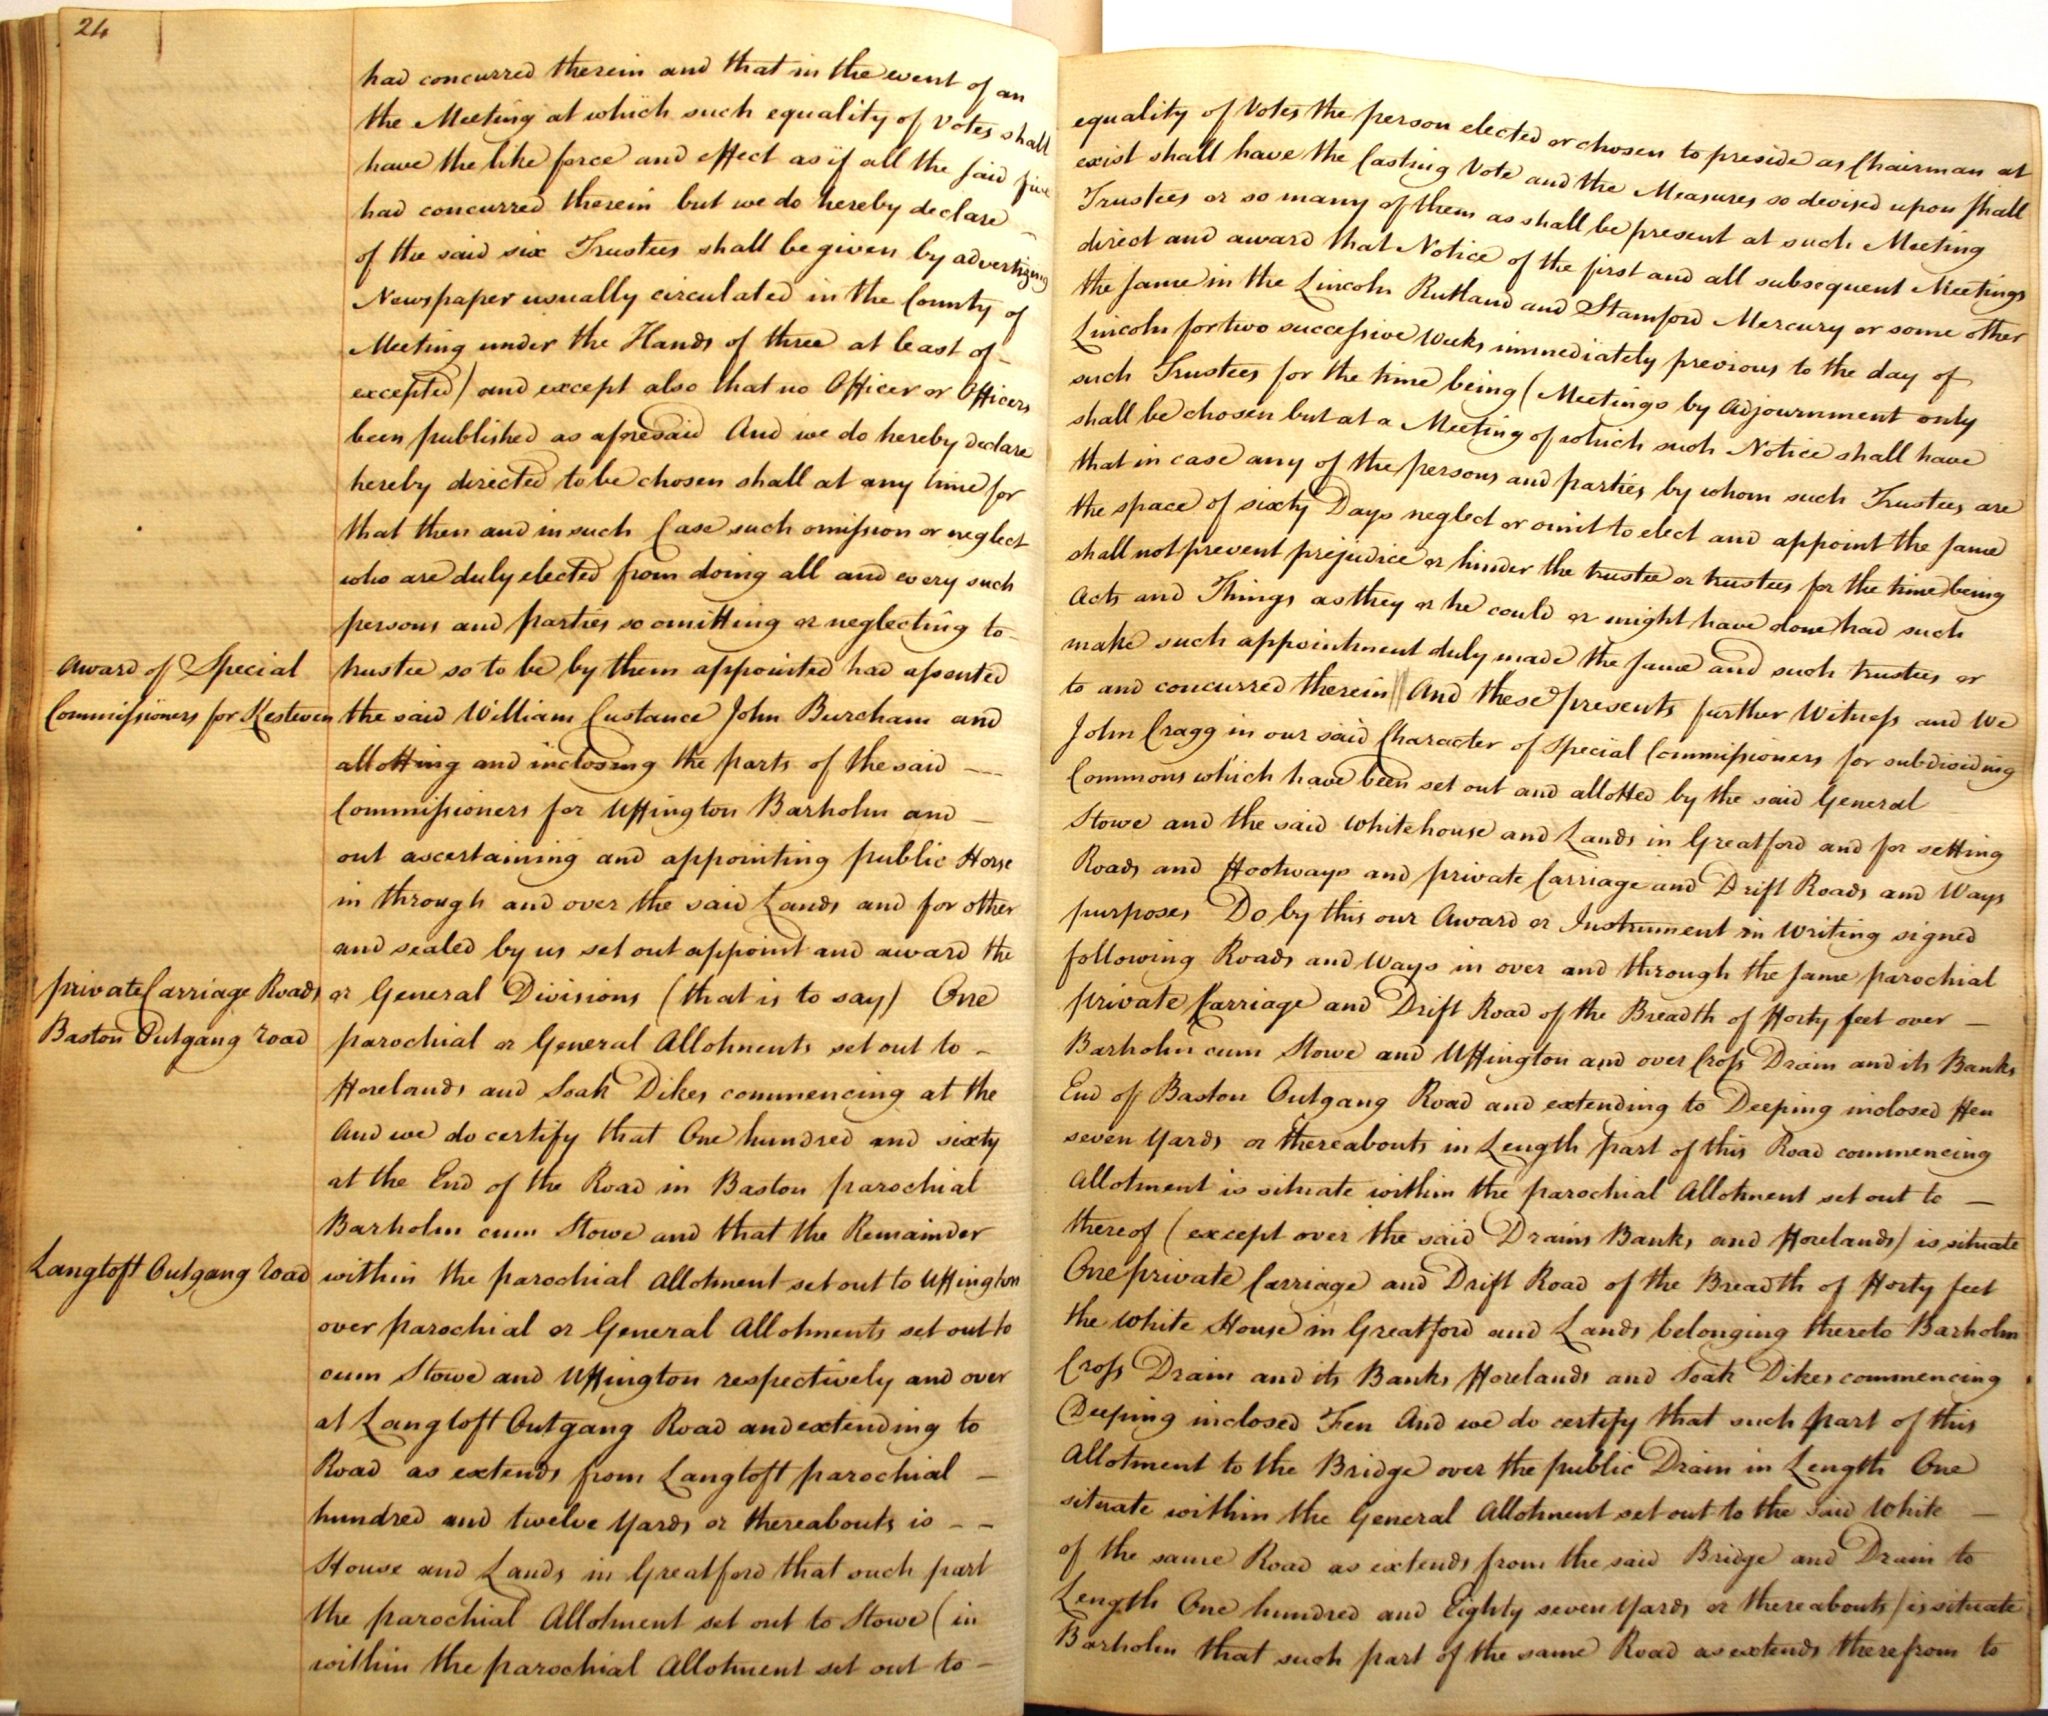 24
had concurred therein and that in the event of an equality of Votes the person elected or chosen to preside as Chairman at
the Meeting at which such equality of Votes shall exist shall have the Casting Vote and the Measures so devised upon shall
have the like force and effect as if all the said five Trustees or so many of them as shall be present at such Meeting
had concurred therein but we do hereby declare direct and award that Notice of the first and all subsequent Meetings
of the said six Trustees shall be given by advertizing the same in the Lincoln Rutland and Stamford Mercury or some other
Newspaper usually circulated in the County of Lincoln for two successive Weeks immediately previous to the day of
Meeting under the Hands of three at least of – such Trustees for the time being (Meetings by Adjournment only
excepted) and except also that no Officer or Officers shall be chosen but at a Meeting of which such Notice shall have
been published as aforesaid And we do hereby declare that in case any of the persons and parties by whom such Trustees are
hereby directed to be chosen shall at any time for the space of sixty Days neglect or omit to elect and appoint the same
that then and in such Case such omission or neglect shall not prevent prejudice or hinder the trustee or trustees for the time being
who are duly elected from doing all and every such Acts and Things as they or he could or might have done had such
persons and parties so omitting or neglecting to – make such appointment duly made the same and such trustees or
Award of Special
trustee so to be by them appointed had assented to and concurred therein || And these presents further Witness and We
Commissioners for Kesteven
the said William Custance John Burcham and John Cragg in our said Character of Special Commissioners for subdividing
allotting and inclosing the parts of the said — Commons which have been set out and allotted by the said General
Commissioners for Uffington Barholm and – Stowe and the said Whitehouse and Lands in Greatford and for setting
out ascertaining and appointing public Horse Roads and Footways and private Carriage and Drift Roads and Ways
in through and over the said Lands and for other purposes Do by this our Award or Instrument in Writing signed
and sealed by us set out appoint and award the following Roads and Ways in over and through the same parochial
private Carriage Roads
or General Divisions (that is to say) One private Carriage and Drift Road of the Breadth of Forty feet over –
Baston Outgang Road
parochial or General Allotments set out to – Barholm cum Stowe and Uffington and over Cross Drain and its Banks
Forelands and Soak Dikes commencing at the End of Baston Outgang Road and extending to Deeping inclosed Fen
And we do certify that One hundred and sixty seven Yards or thereabouts in Length part of this Road commencing
at the End of the Road in Baston parochial Allotment is situate within the parochial Allotment set out to –
Barholm cum Stowe and that the Remainder thereof (except over the said Drains Banks and Forelands) is situate
Langtoft Outgang Road
within the parochial Allotment set out to Uffington One private Carriage and Drift Road of the Breadth of Forty feet
over parochial or General Allotments set out to the White House in Greatford and Lands belonging thereto Barholm
cum Stowe and Uffington respectively and over Cross Drain and its Banks Forelands and Soak Dikes commencing
at Langtoft Outgang Road and extending to Deeping inclosed Fen And we do certify that such part of this
Road as extends from Langtoft parochial – Allotment to the Bridge over the public Drain in Length One
hundred and twelve Yards or thereabouts is – – situate within the General Allotment set out to the said White –
House and Lands in Greatford that such part of the same Road as extends from the said Bridge and Drain to
the parochial Allotment set out to Stowe (in Length One hundred and Eighty seven Yards or thereabouts) is situate
within the parochial Allotment set out to – Barholm that such part of the same Road as extends therefrom to